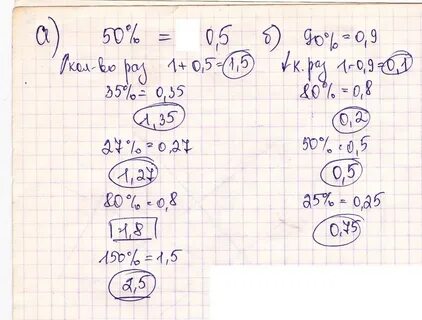 а) 50% = 0,5
↑кол-во раз 1+0,5=1,5
35%=0,35
1,35
27%=0,27
1,27
80%=0,8
1,8
150%=1,5
2,5
б) 90%=0,9
↓к. раз 1-0,9=0,1
80%=0,8
0,2
50%=0,5
0,5
25%=0,25
0,75